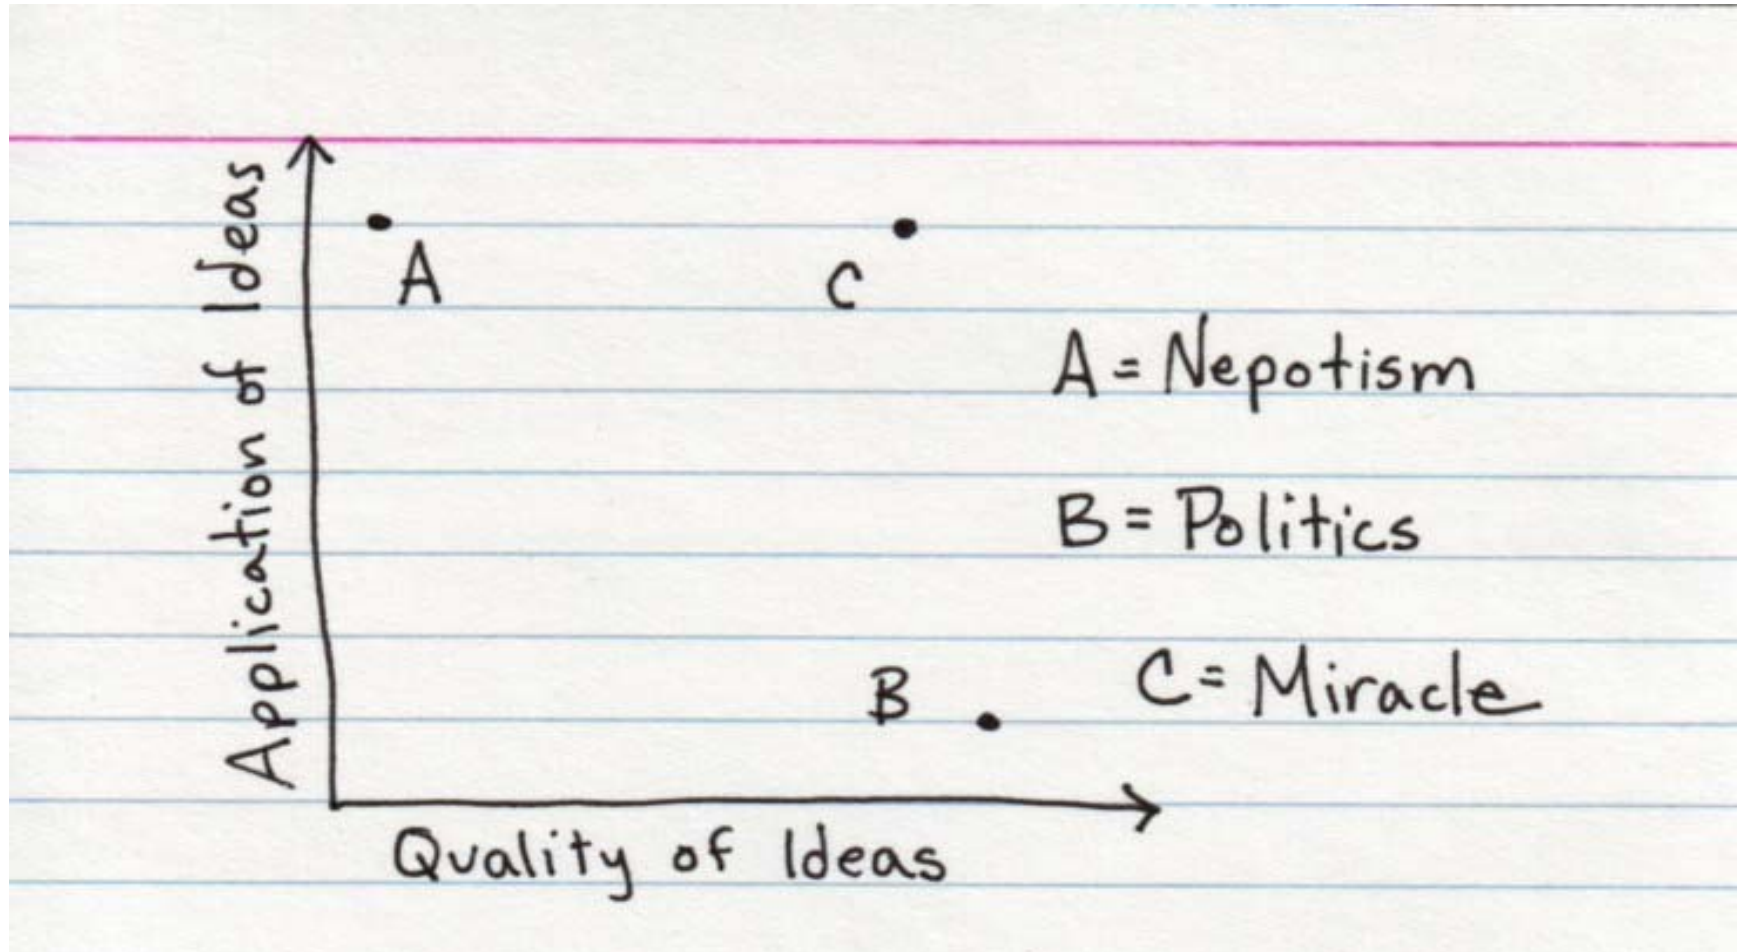 Application of Ideas
A
C
A = Nepotism
B = Politics
B
C = Miracle
Quality of Ideas